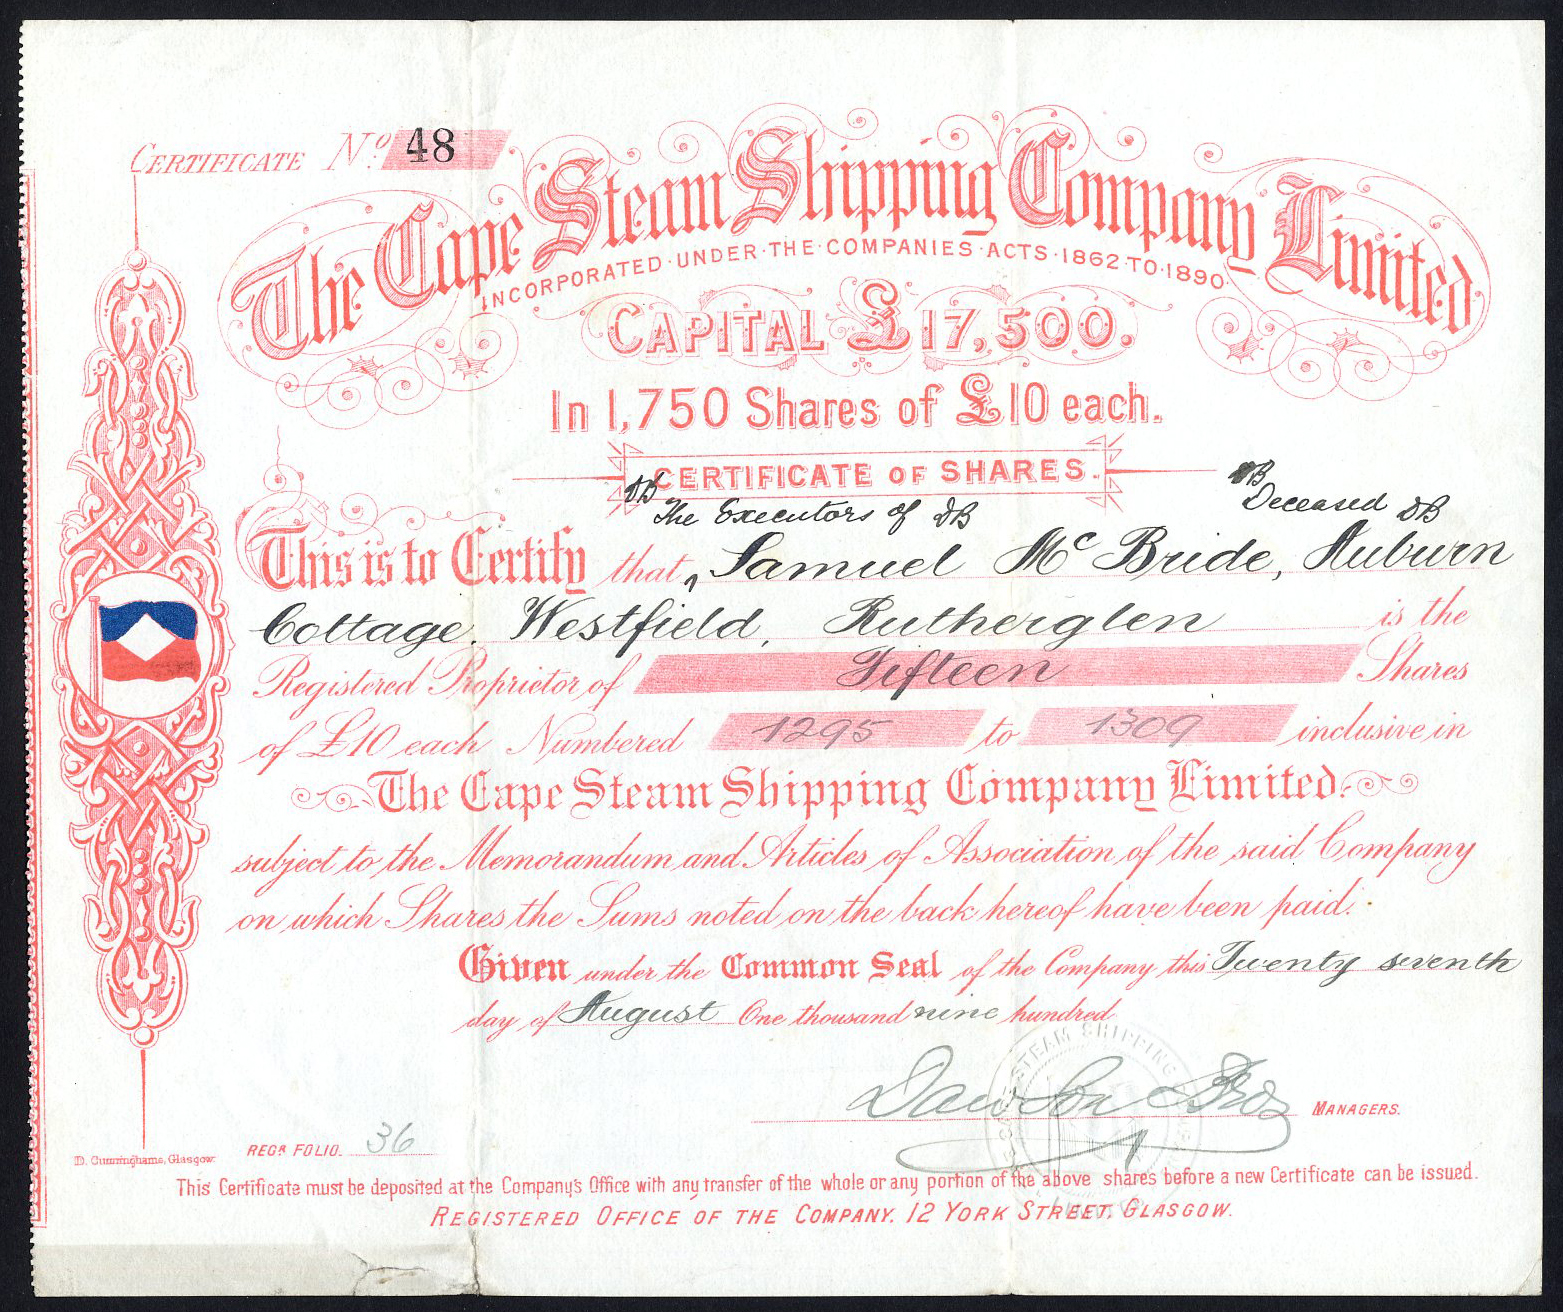 CERTIFICATE No. 48
The Cape Steam Shipping Company Limited
INCORPORATED · UNDER · THE · COMPANIES · ACTS · 1862 · TO · 1890.
CAPITAL £17,500.
In 1,750 Shares of £10 each.
CERTIFICATE OF SHARES.
DB DB
The Executors of DB Deceased DB
This is to Certify that ‸ Samuel Mc Bride, Auburn
Cottage. Westfield, Rutherglen is the
Registered Proprietor of Fifteen Shares
of £10 each Numbered 1295 to 1309 inclusive in
The Cape Steam Shipping Company Limited.
subject to the Memorandum and Articles of Association of the said Company
on which Shares the Sums noted on the back hereof have been paid.
Given under the Common Seal of the Company this Twenty seventh
day of August One thousand nine hundred
STEAM SHIPPING
Dawson Bros MANAGERS.
REGR. FOLIO. 36
D. Cunninghame, Glasgow.
This Certificate must be deposited at the Company's Office with any transfer of the whole or any portion of the above shares before a new Certificate can be issued.
REGISTERED OFFICE OF THE COMPANY. 12 YORK STREET, GLASGOW.